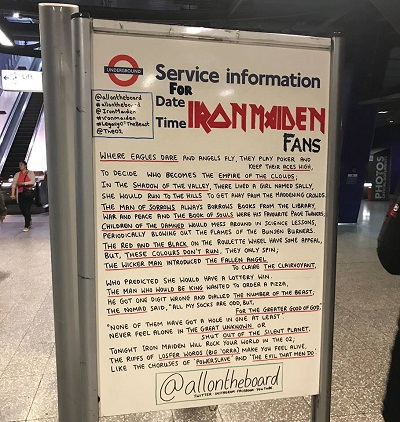 UNDERGROUND
Service information
FOR
Date
Time
IRON MAIDEN
FANS
@allontheboard
#allontheboard
@IronMaiden
#ironmaiden
#LegacyOfTheBeast
@TheO2
WHERE EAGLES DARE AND ANGELS FLY, THEY PLAY POKER AND
KEEP THEIR ACES HIGH,
TO DECIDE WHO BECOMES THE EMPIRE OF THE CLOUDS;
IN THE SHADOW OF THE VALLEY, THERE LIVED A GIRL NAMED SALLY,
SHE WOULD RUN TO THE HILLS TO GET AWAY FROM THE MADDENING CROWDS.
THE MAN OF SORROWS ALWAYS BORROWS BOOKS FROM THE LIBRARY,
WAR AND PEACE AND THE BOOK OF SOULS WERE HIS FAVOURITE PAGE TURNERS,
CHILDREN OF THE DAMNED WOULD MESS AROUND IN SCIENCE LESSONS,
PERIODICALLY BLOWING OUT THE FLAMES OF THE BUNSEN BURNERS.
THE RED AND THE BLACK ON THE ROULETTE WHEEL HAVE SOME APPEAL,
BUT, THESE COLOURS DON'T RUN, THEY ONLY SPIN;
THE WICKER MAN INTRODUCED THE FALLEN ANGEL
TO CLAIRE THE CLAIRVOYANT,
WHO PREDICTED SHE WOULD HAVE A LOTTERY WIN.
THE MAN WHO WOULD BE KING WANTED TO ORDER A PIZZA,
HE GOT ONE DIGIT WRONG AND DIALLED THE NUMBER OF THE BEAST,
THE NOMAD SAID, "ALL MY SOCKS ARE ODD, BUT,
FOR THE GREATER GOOD OF GOD,
"NONE OF THEM HAVE GOT A HOLE IN ONE AT LEAST.
NEVER FEEL ALONE IN THE GREAT UNKNOWN OR
SHUT OUT OF THE SILENT PLANET,
TONIGHT IRON MAIDEN WILL ROCK YOUR WORLD IN THE O2;
THE RIFFS OF LOSFER WORDS (BIG 'ORRA) MAKE YOU FEEL ALIVE,
LIKE THE CHORUSES OF 'POWERSLAVE' AND 'THE EVIL THAT MEN DO'.
@allontheboard
TWITTER INSTAGRAM FACEBOOK YOUTUBE
PHOTOS